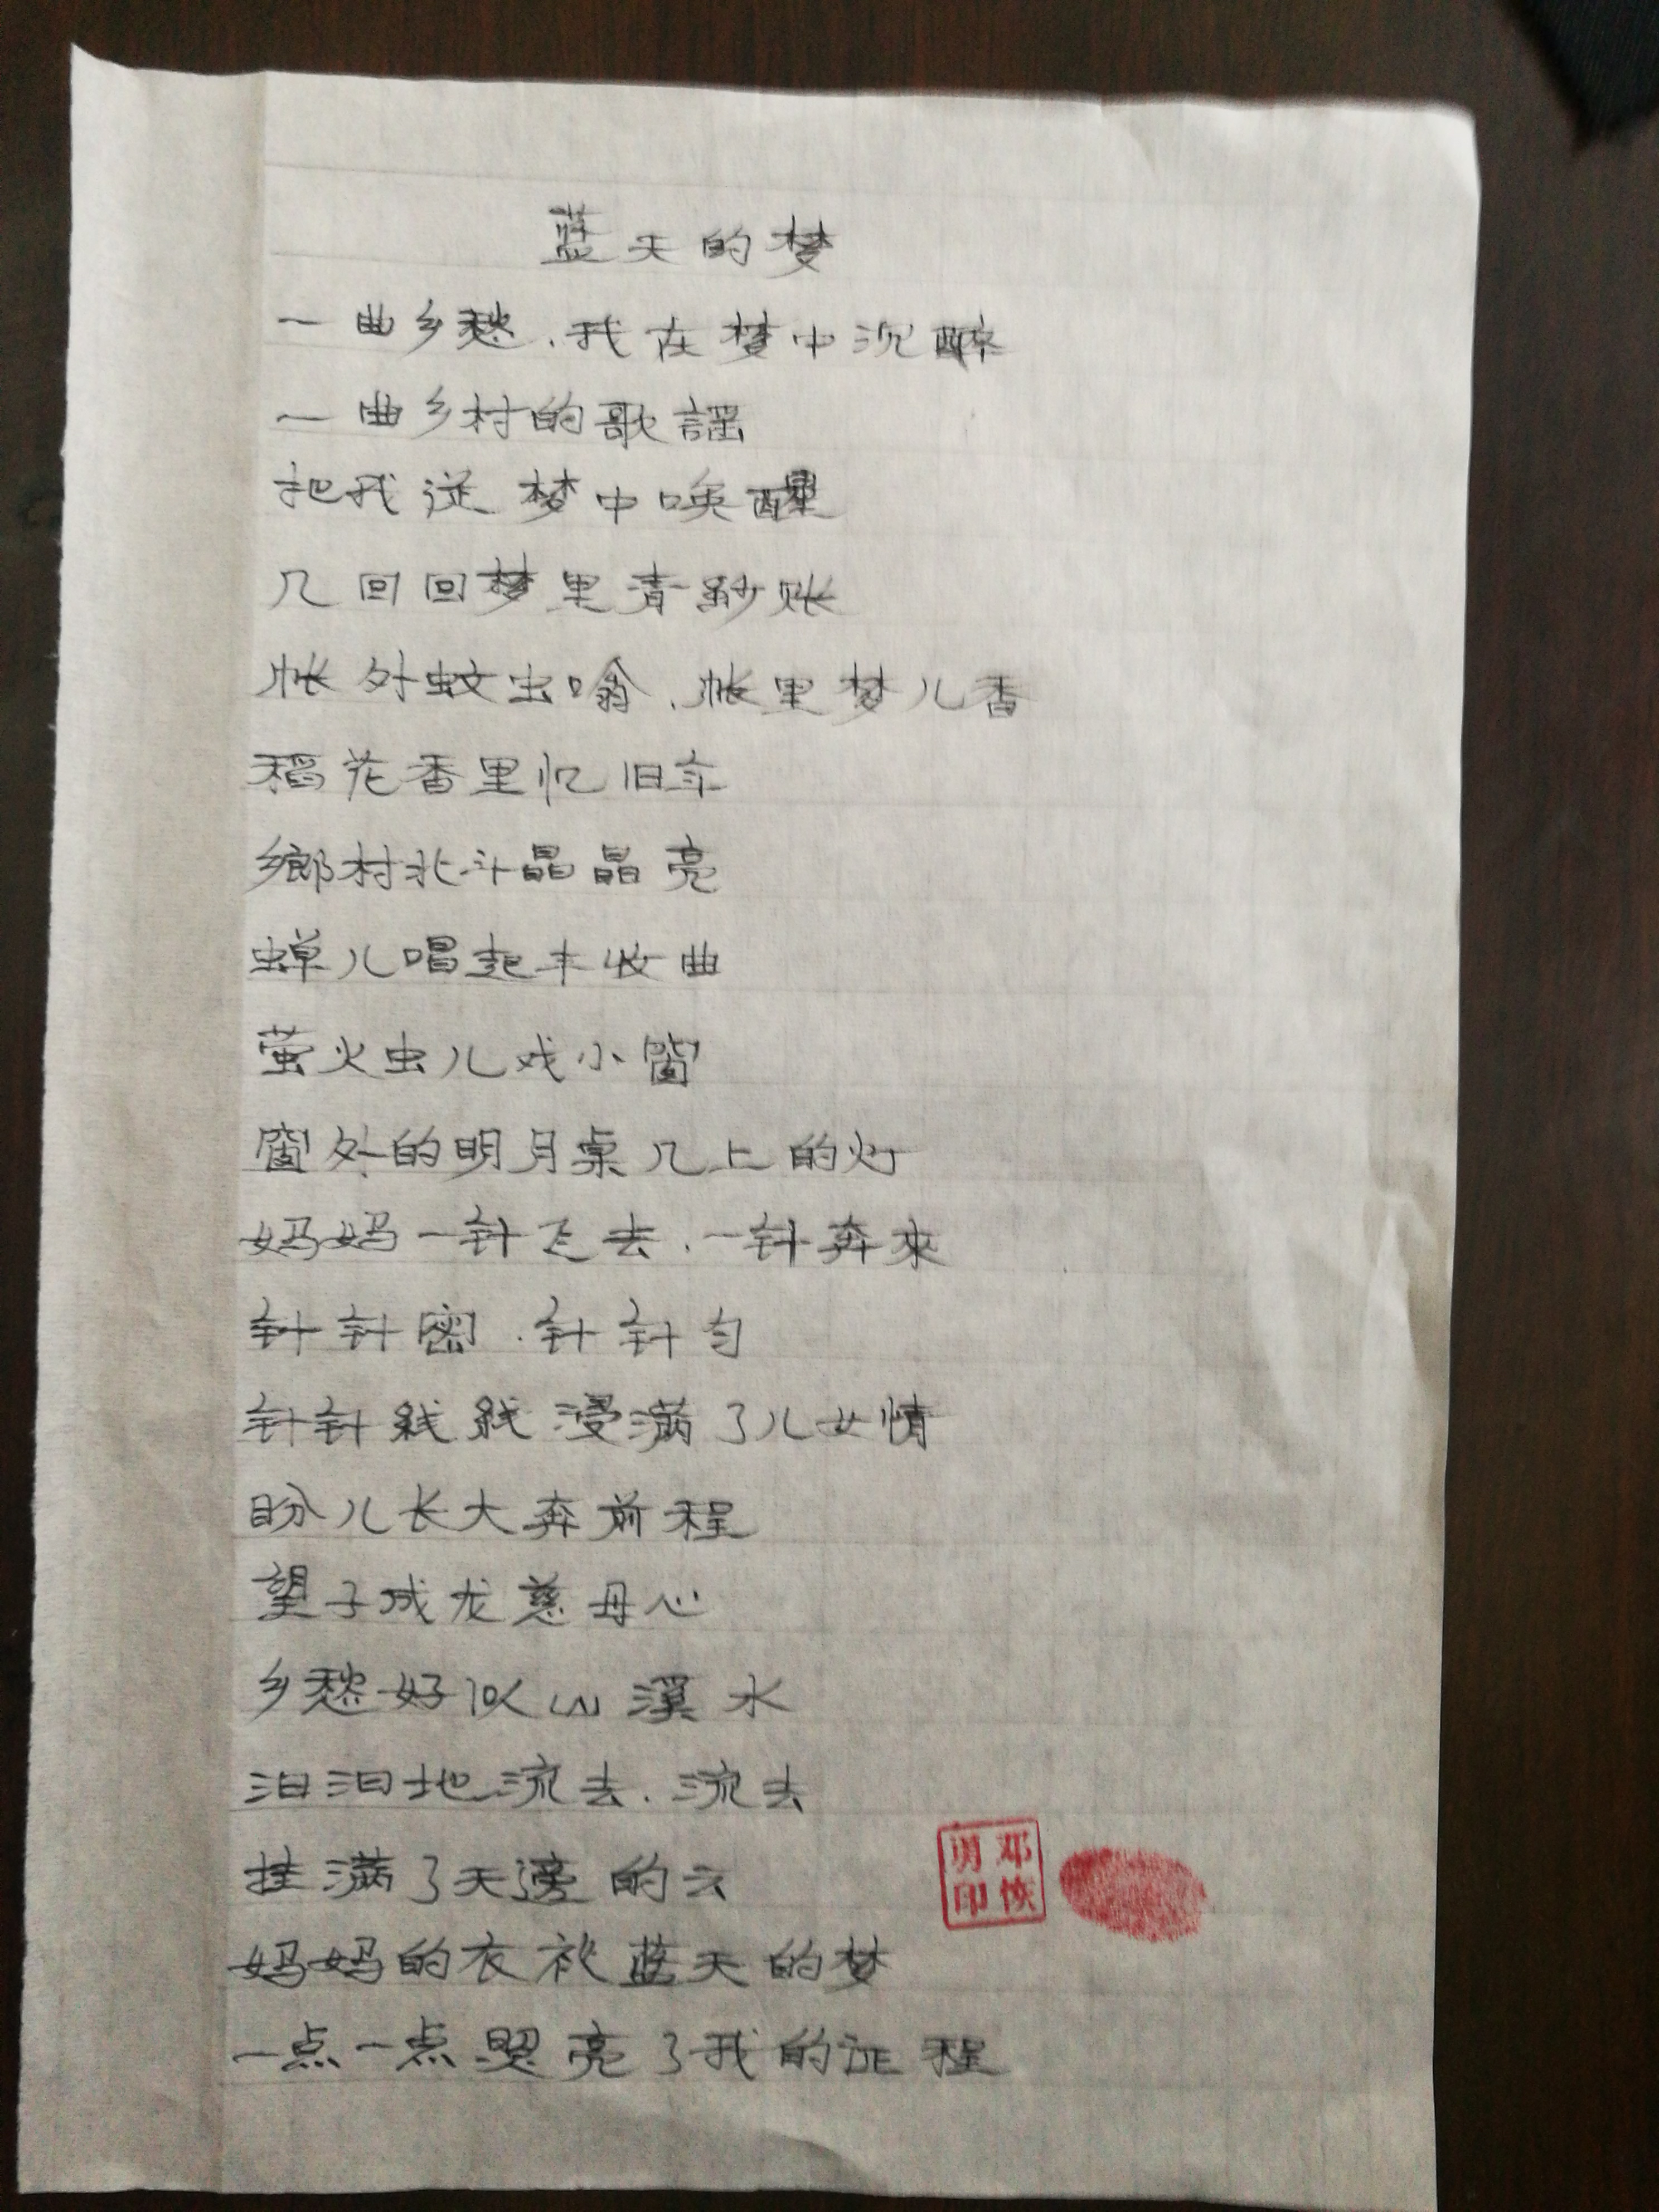 蓝天的梦
一曲乡愁.我在梦中沉醉
一曲乡村的歌謡
把我从梦中唤醒
几回回梦里青紗账
帐外蚊虫嗡.帐里梦儿香
稻花香里忆旧年
鄉村北斗晶晶亮
蝉儿唱起丰收曲
萤火虫儿戏小窗
窗外的明月桌几上的灯
妈妈一针飞去.一针奔來
针针密.针针匀
针针線線浸满了儿女情
盼儿长大奔前程
望子成龙慈母心
乡愁好似山溪水
汩汩地流去.流去
挂满了天邊的云
妈妈的衣衫蓝天的梦
一点一点照亮了我的征程
邓恢
勇印